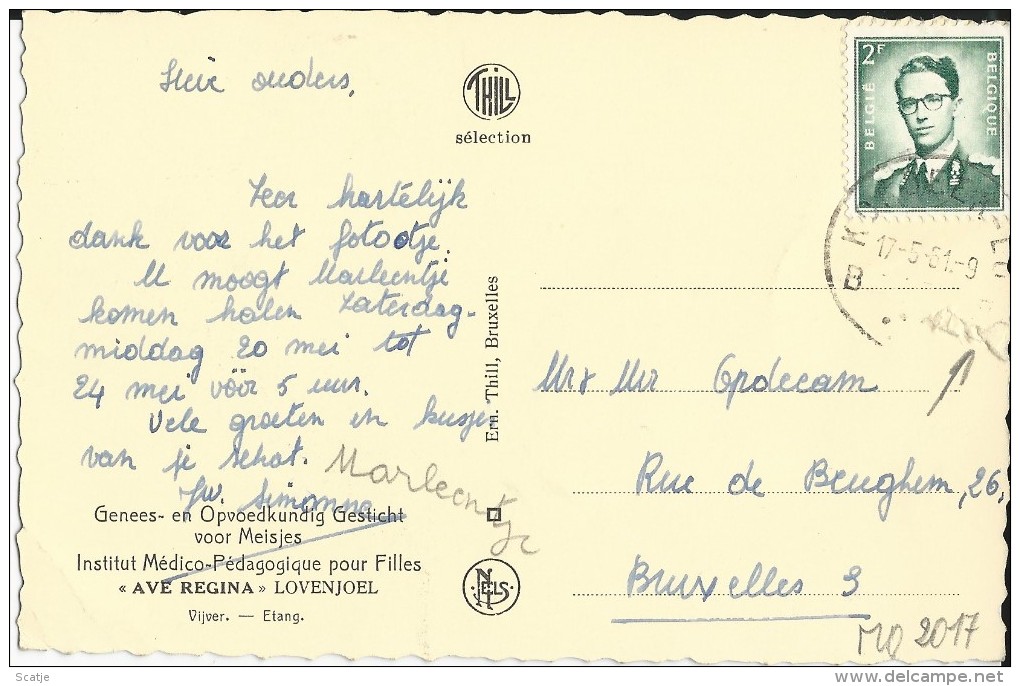 ouders,
Zeer hartelijk
dank voor het fotootje.
U moogt Marleentje
komen halen Zaterdag-
middag 20 mei tot
24 mei vóór 5 uur.
Vele groeten en kusje
van je schat.
Marleentje
Jw. Simonne
Genees- en Opvoedkundig Gesticht
voor Meisjes
Institut Médico-Pédagogique pour Filles
« AVE REGINA » LOVENJOEL
Vijver. — Etang.
THILL
sélection
Ern. Thill, Bruxelles
NELS
2F
BELGIË
BELGIQUE
17-5-61.-9
B
Mr & Mr Opdecam
Rue de Beughem, 26,
Bruxelles 3
MQ 2017
Scatje
www.delcampe.net